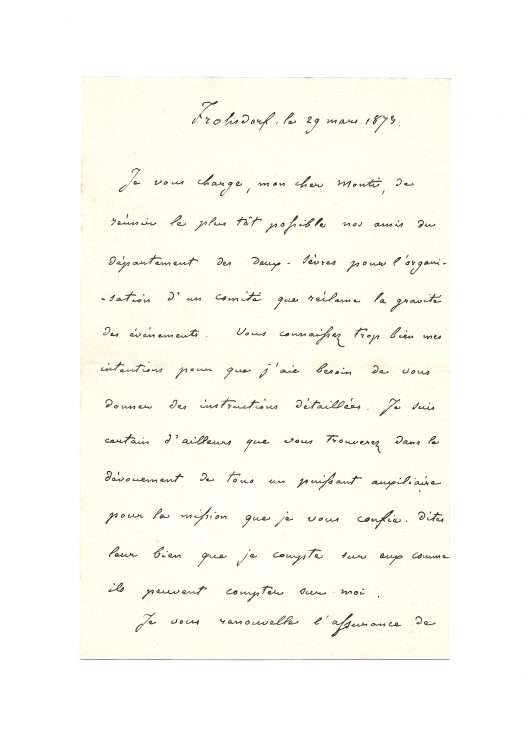 Frohsdorf. le 29 mars 1873.
Je vous charge, mon cher Monti, de
réunir le plus tôt possible nos amis du
département des deux-Sèvres pour l'organi-
-sation d'un comité que réclame la gravité
des événements. Vous connaissez trop bien mes
intentions pour que j'aie besoin de vous
donner des instructions détaillées. Je suis
certain d'ailleurs que vous trouverez dans le
dévouement de tous un puissant auxiliaire
pour la mission que je vous confie. Dites
leur bien que je compte sur eux comme
ils peuvent compter sur moi.
Je vous renouvelle l'assurance de